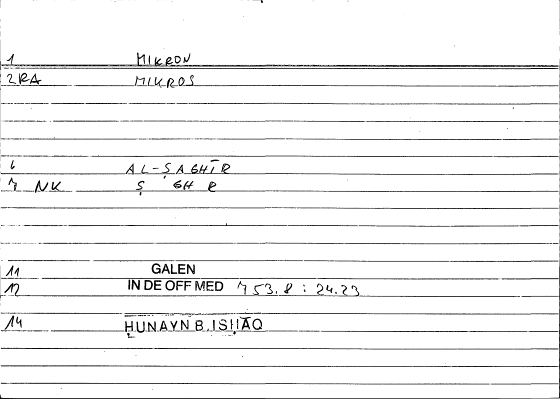 1 MIKRON
2RA MIKROS
6 AL-ṢAGHĪR
7 NK Ṣ GH R
11 GALEN
12 IN DE OFF MED 753.8 : 24.23
14 ḤUNAYN B. ISḤĀQ